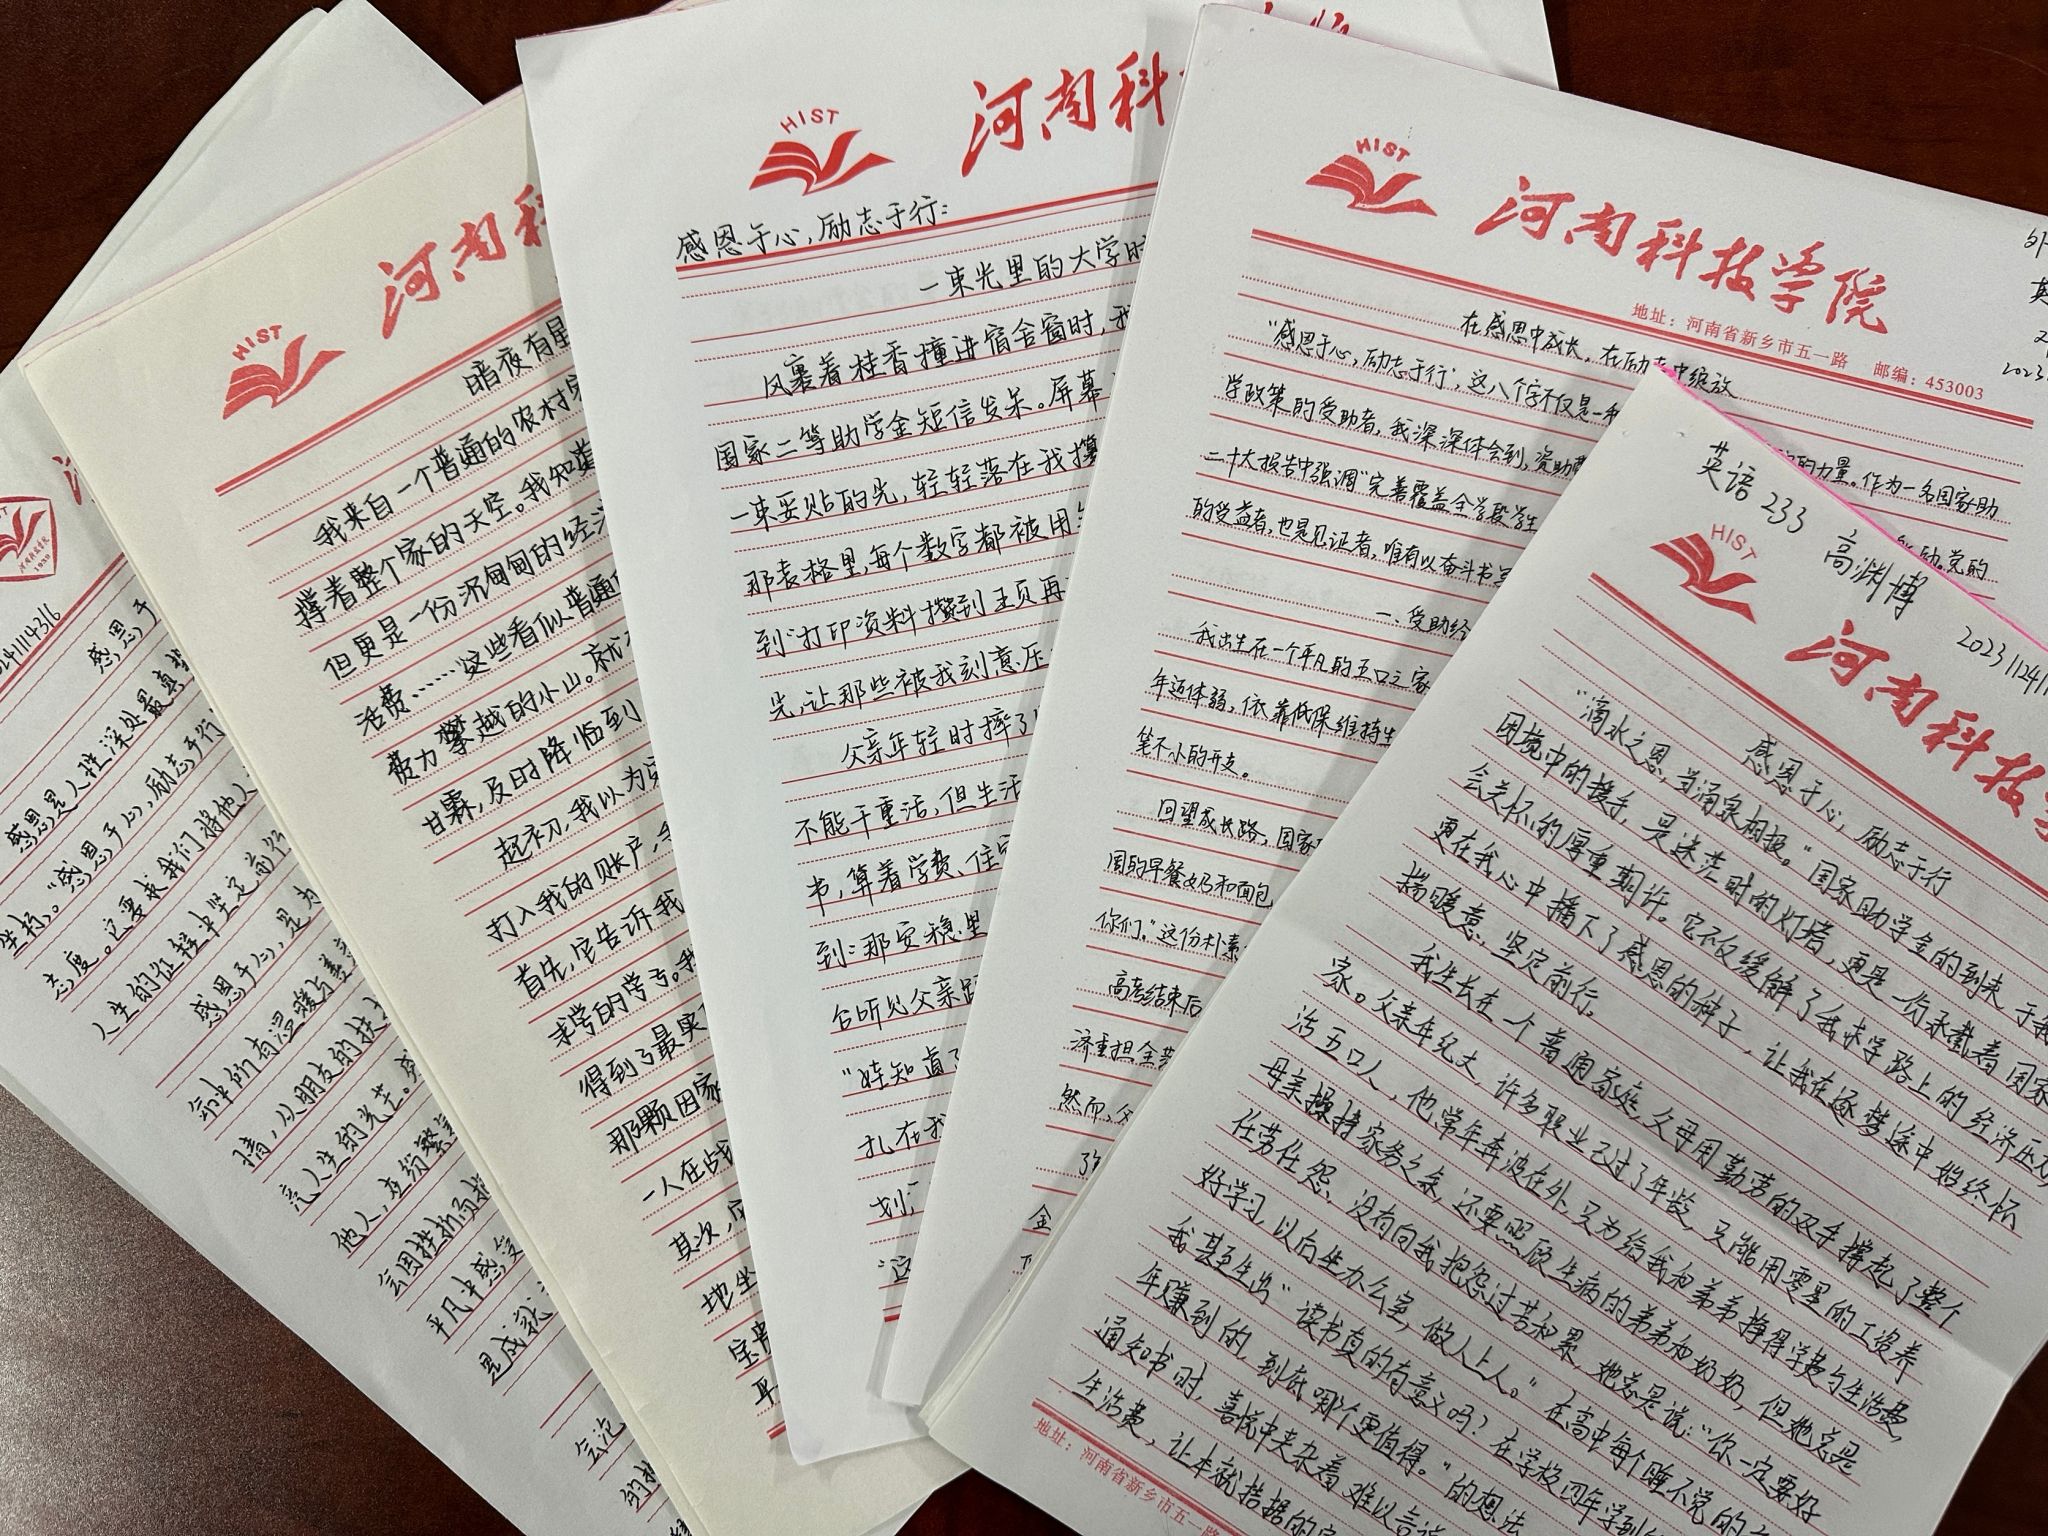 2411114316
感恩于
感恩是人性深处最真
坐标。"感恩于心,励志于行
志度。它要求我们将他人
人生的征程中坚定前行
感恩于心,是为
命中所有温暖与善
情,从朋友的扶
亮人生的光芒。
他人,在纷繁
会因挫折而
平凡中感受
是成就
会论
的
HIST
河南
暗夜有星
我来自一个普通的农村家
撑着整个家的天空。我知道
但更是一份沉甸甸的经济
活费……这些看似普通
费力攀越的小山。就
甘霖,及时降临到
起初,我以为
打入我的账户,
首先,它告诉我
求学的学子。我
得到了最实
那颗因家
一人在战
其次,
地坐
宝贵
平
HIST
河南科
感恩于心,励志于行:
一束光里的大学时
风裹着桂香撞进宿舍窗时,我
国家二等助学金短信发呆。屏幕
一束妥贴的光,轻轻落在我攥
那表格里,每个数字都被用
到"打印资料攒到五页再
光,让那些被我刻意压
父亲年轻时摔了
不能干重活,但生活
书,算着学费、住宿
到:那安稳里
台听见父亲
"娃知道了
扎在我
划
"这
HIST
河南科技学院
地址:河南省新乡市五一路 邮编:453003
在感恩中成长,在励志中绽放
"感恩于心,励志于行",这八个字不仅是一种
的力量。作为一名国家助
学政策的受助者,我深深体会到,资助
励。党的
二十大报告中强调"完善覆盖全学段学生
的受益者,也是见证者,唯有以奋斗书写
一、受助经
我出生在一个平凡的五口之家
年迈体弱,依靠低保维持生
笔不小的开支。
回望成长路,国家
园的早餐奶和面包
你们。"这份朴素
高考结束后
济重担全
然而,父
金
英语233 高渊博 2023112411
HIST
河南科技学
感恩于心,励志于行
"滴水之恩,当涌泉相报。"国家助学金的到来,于我
困境中的援手,是迷茫时的灯塔,更是一份承载着国家
会关怀的厚重期许。它不仅缓解了我求学路上的经济压力
更在我心中播下了感恩的种子,让我在逐梦途中始终怀
揣暖意,坚定前行。
我生长在一个普通家庭,父母用勤劳的双手撑起了整个
家。父亲年纪大,许多职业已过了年龄,只能用零星的工资养
活五口人,他常年奔波在外,只为给我和弟弟挣得学费与生活费,
母亲操持家务之余,还要照顾生病的弟弟和奶奶,但她总是
任劳任怨,没有向我抱怨过苦和累,她总是说:"你一定要好
好学习,以后坐办公室,做人上人。"在高中每个睡不觉的
我甚至生出"读书真的有意义吗?在学校四年学到的
年赚到的,到底哪个更值得。"的想法
通知书时,喜悦中夹杂着难以言说
生活费,让本就拮据的家
地址:河南省新乡市五一路